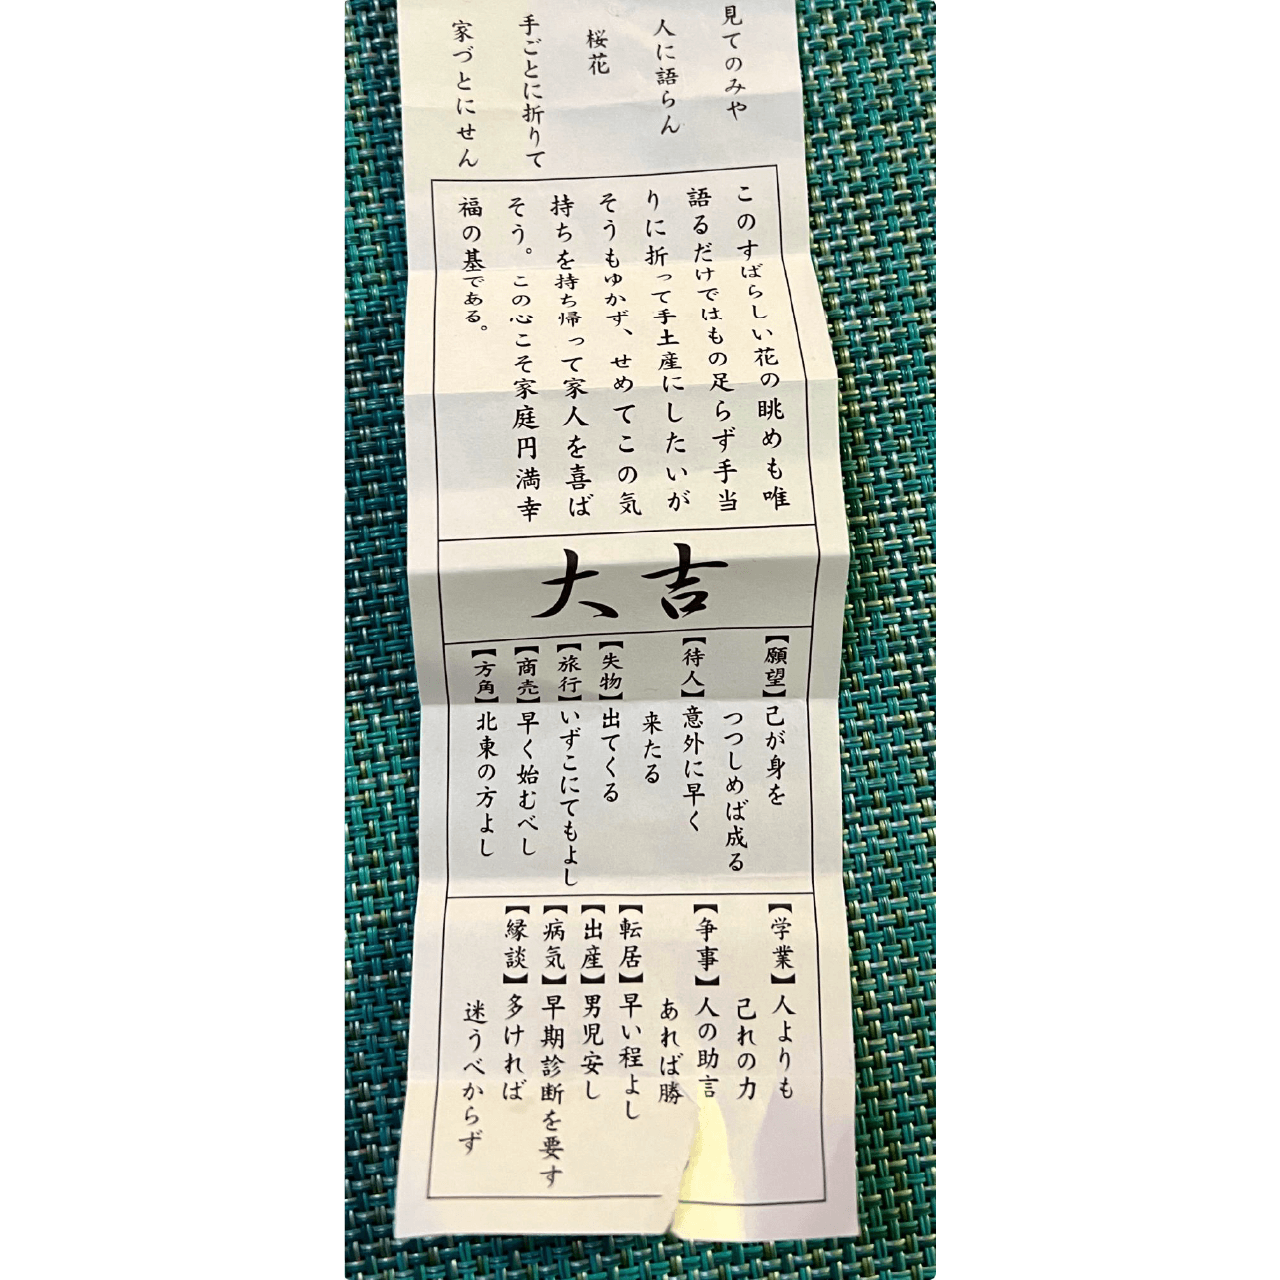 見てのみや
人に語らん
桜花
手ごとに折りて
家づとにせん
このすばらしい花の眺めも唯
語るだけではもの足らず手当
りに折って手土産にしたいが
そうもゆかず、せめてこの気
持ちを持ち帰って家人を喜ば
そう。この心こそ家庭円満幸
福の基である。
大吉
【願望】己が身を
つつしめば成る
【待人】意外に早く
来たる
【失物】出てくる
【旅行】いずこにてもよし
【商売】早く始むべし
【方角】北東の方よし
【学業】人よりも
己れの力
【争事】人の助言
あれば勝
【転居】早い程よし
【出産】男児安し
【病気】早期診断を要す
【縁談】多ければ
迷うべからず